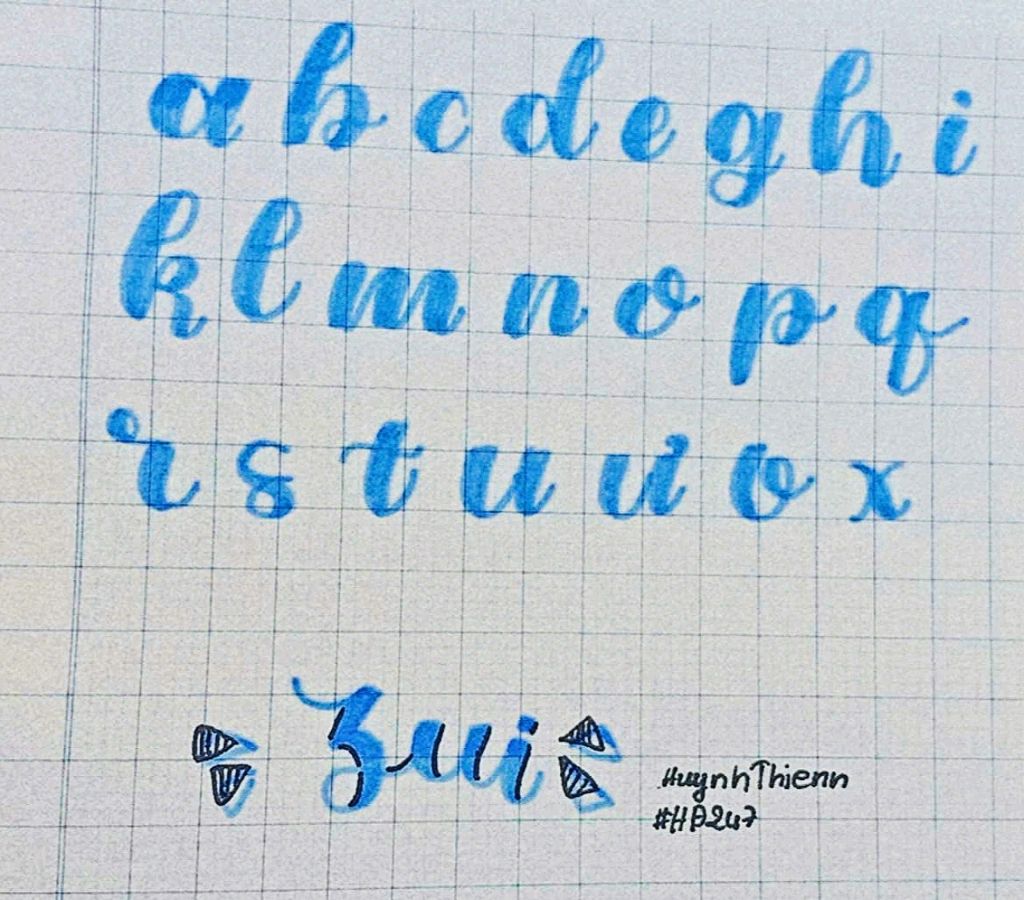 a b c d e g h i
k l m n o p q
r s t u ư v x
Zui
HuynhThienn
#HĐ247